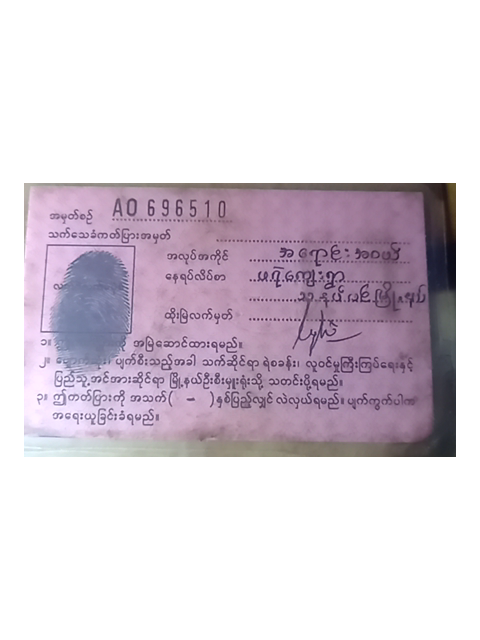 အမှတ်စဉ် AO 696510
သက်သေခံကတ်ပြားအမှတ်
အလုပ်အကိုင် အရောင်းအဝယ်
နေရပ်လိပ်စာ ကျေးရွာ
ထိုးမြဲလက်မှတ်
၁။ အမြဲဆောင်ထားရမည်။
၂။ ပျောက်ဆုံး၊ ပျက်စီးသည့်အခါ သက်ဆိုင်ရာ ရဲစခန်း၊ လူဝင်မှုကြီးကြပ်ရေးနှင့်
ပြည်သူ့အင်အားဆိုင်ရာ မြို့နယ်ဦးစီးမှူးရုံးသို့ သတင်းပို့ရမည်။
၃။ ဤကတ်ပြားကို အသက်( – )နှစ်ပြည့်လျှင် လဲလှယ်ရမည်။ ပျက်ကွက်ပါက
အရေးယူခြင်းခံရမည်။